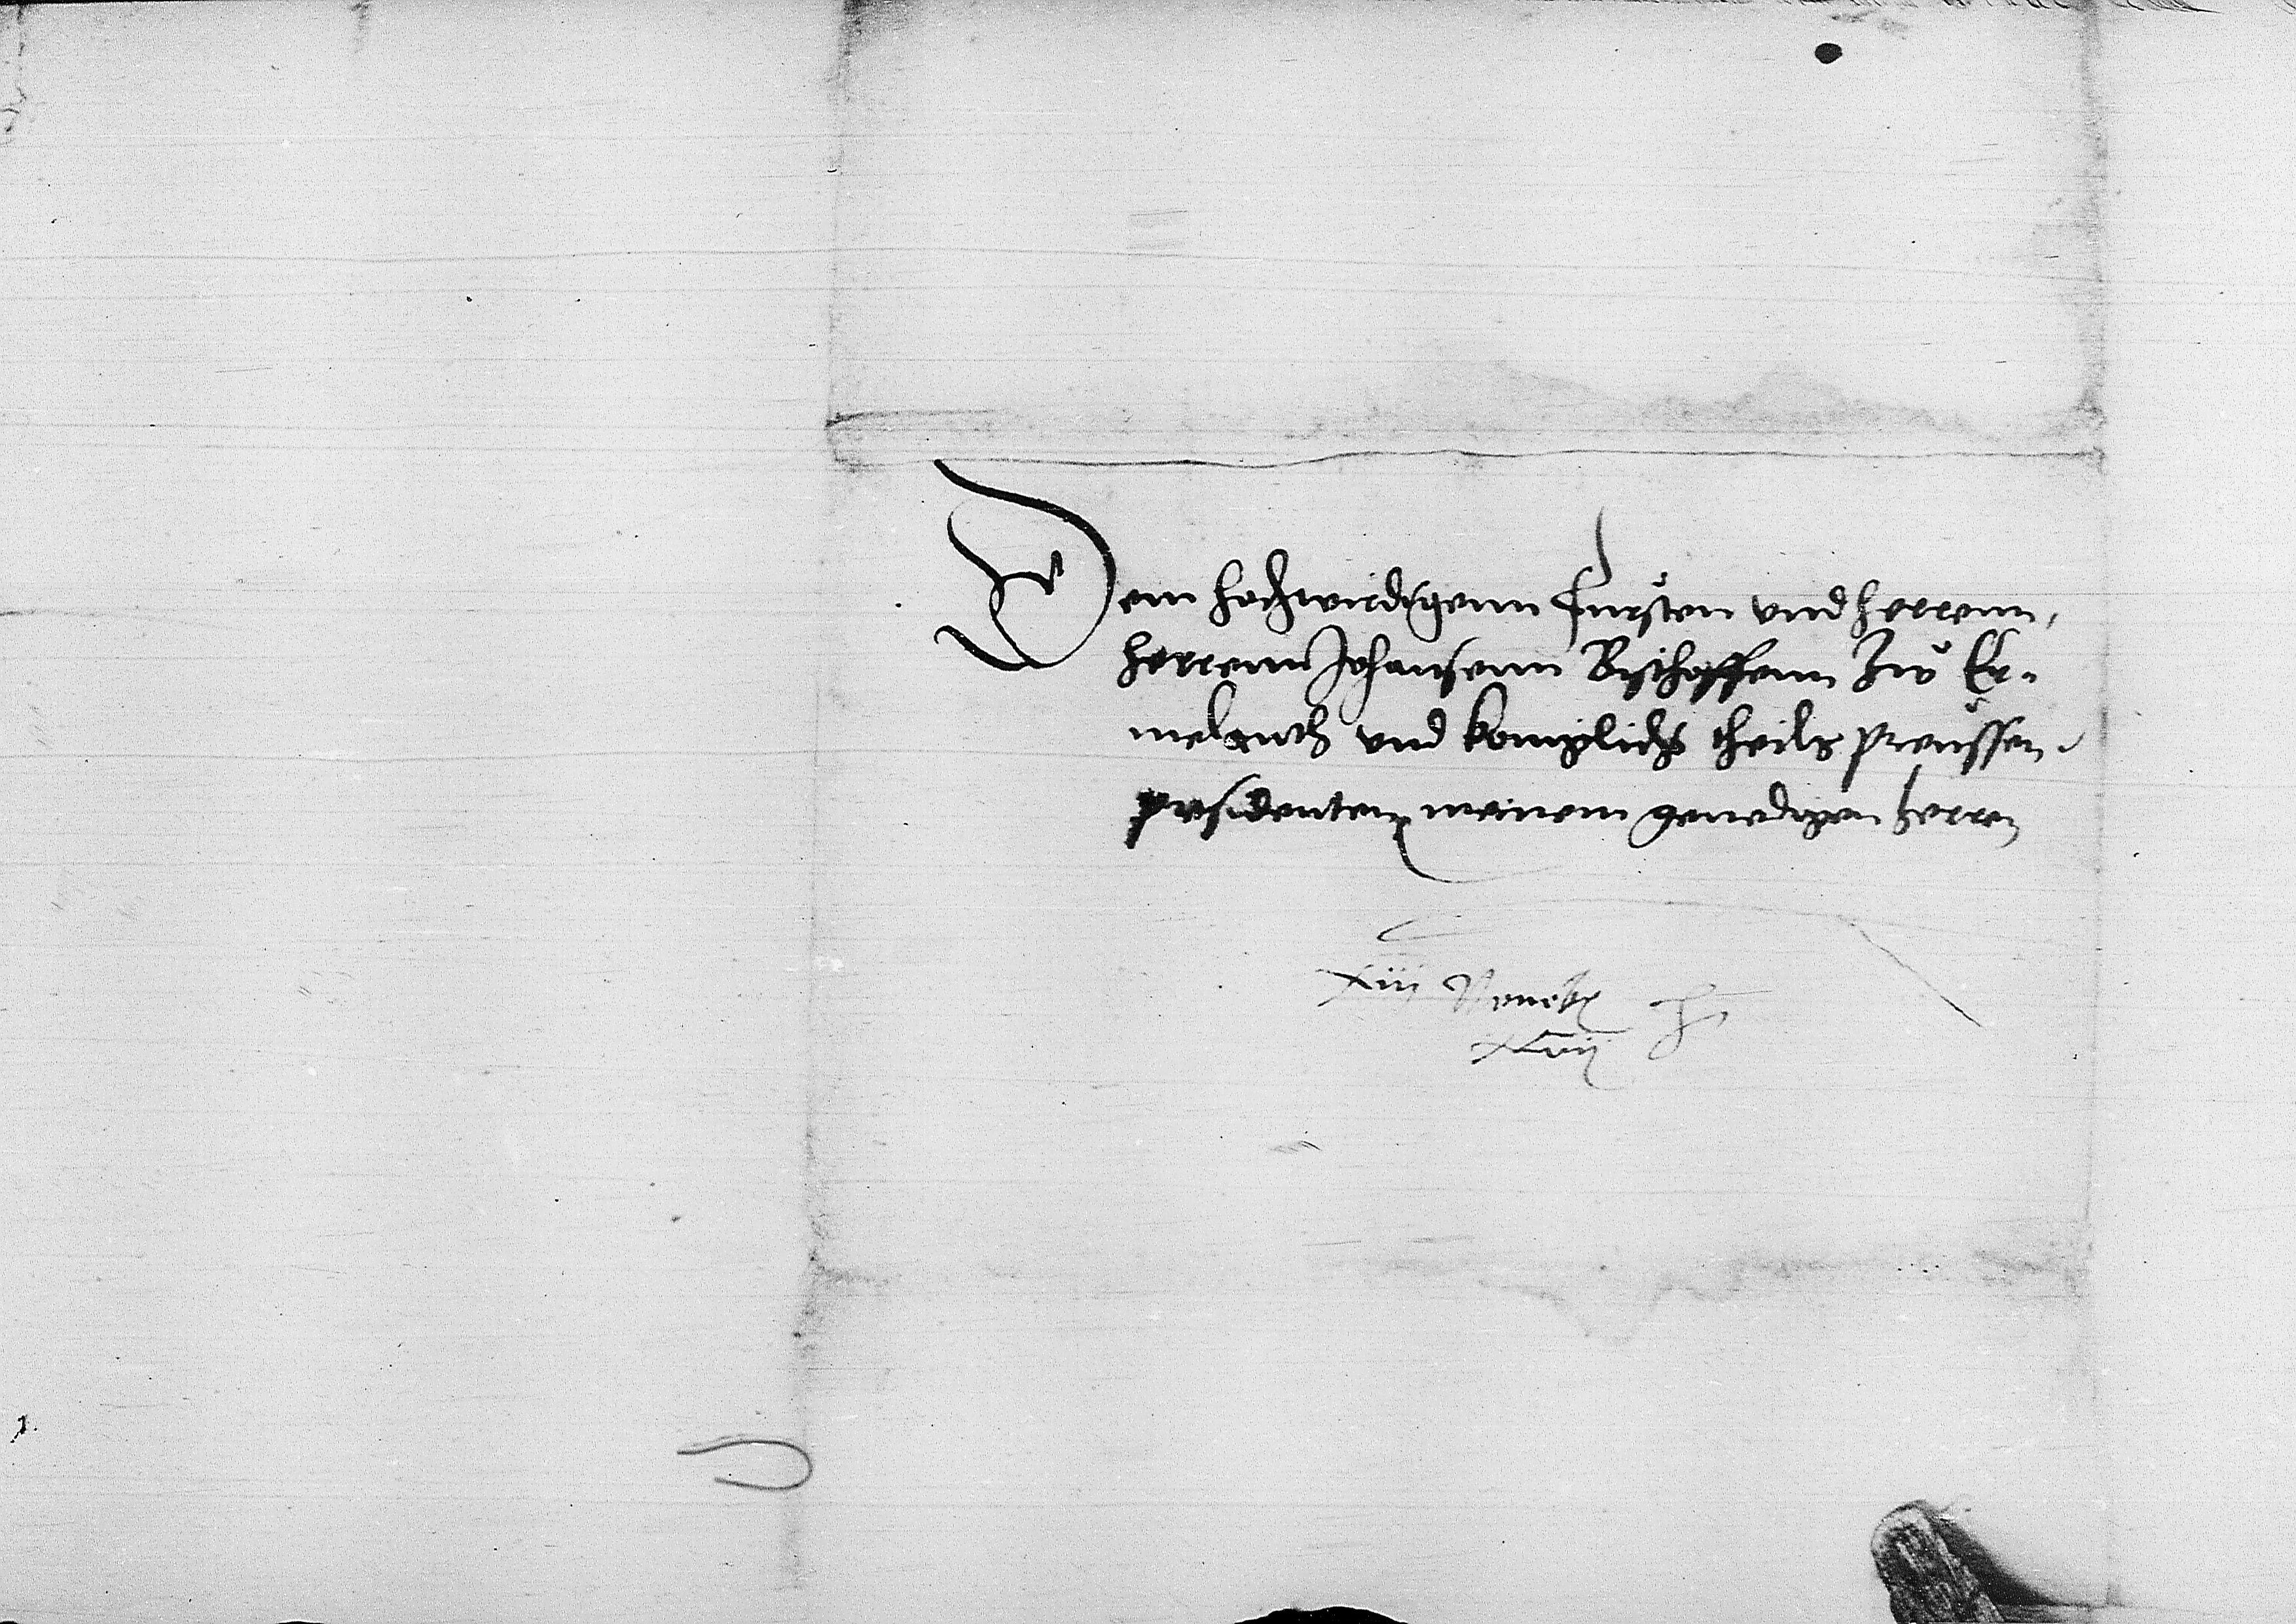 Dem hochwirdigenn fursten vnd herrenn,
herrenn Johansenn Bischoffenn Zw Er-
melanth vnd koniglichs theils preussen
presidenten meinem genedigen herren
xiii Nouebr